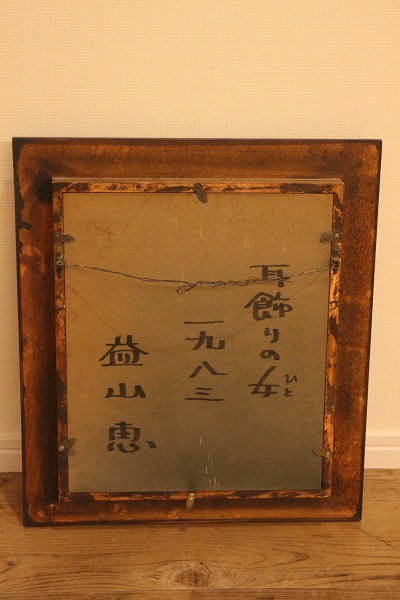 耳飾りの女
ひと
一九八三
益山 恵